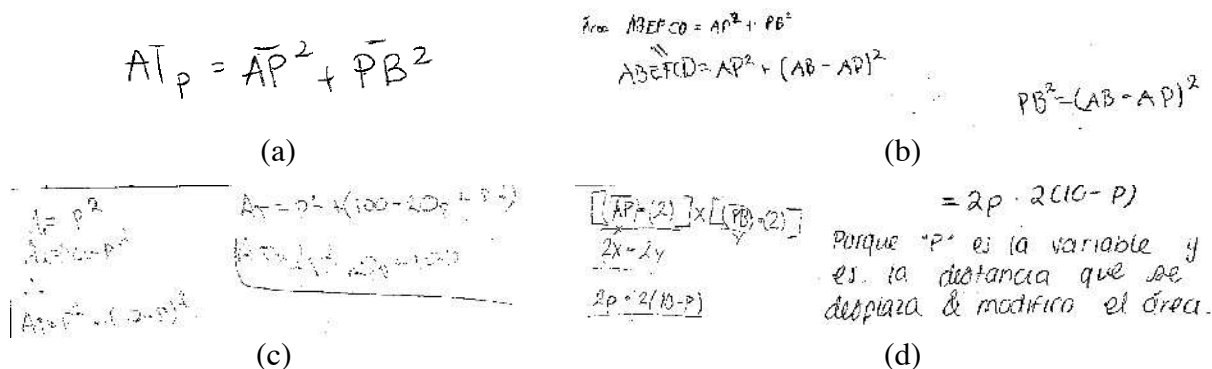 AT_p = AP² + PB²
(a)
Área ABEFCD = AP² + PB²
ABEFCD = AP² + (AB - AP)²
PB² = (AB - AP)²
(b)
A = p²
∴
A_T = p² + (100 - 20p + p²)
(c)
[(AP)·(2)] x [(PB)·(2)]
2x · 2y
2p · 2(10-p)
= 2p · 2(10-p)
Porque "P" es la variable y
es la distancia que se
desplaza & modifica el área.
(d)